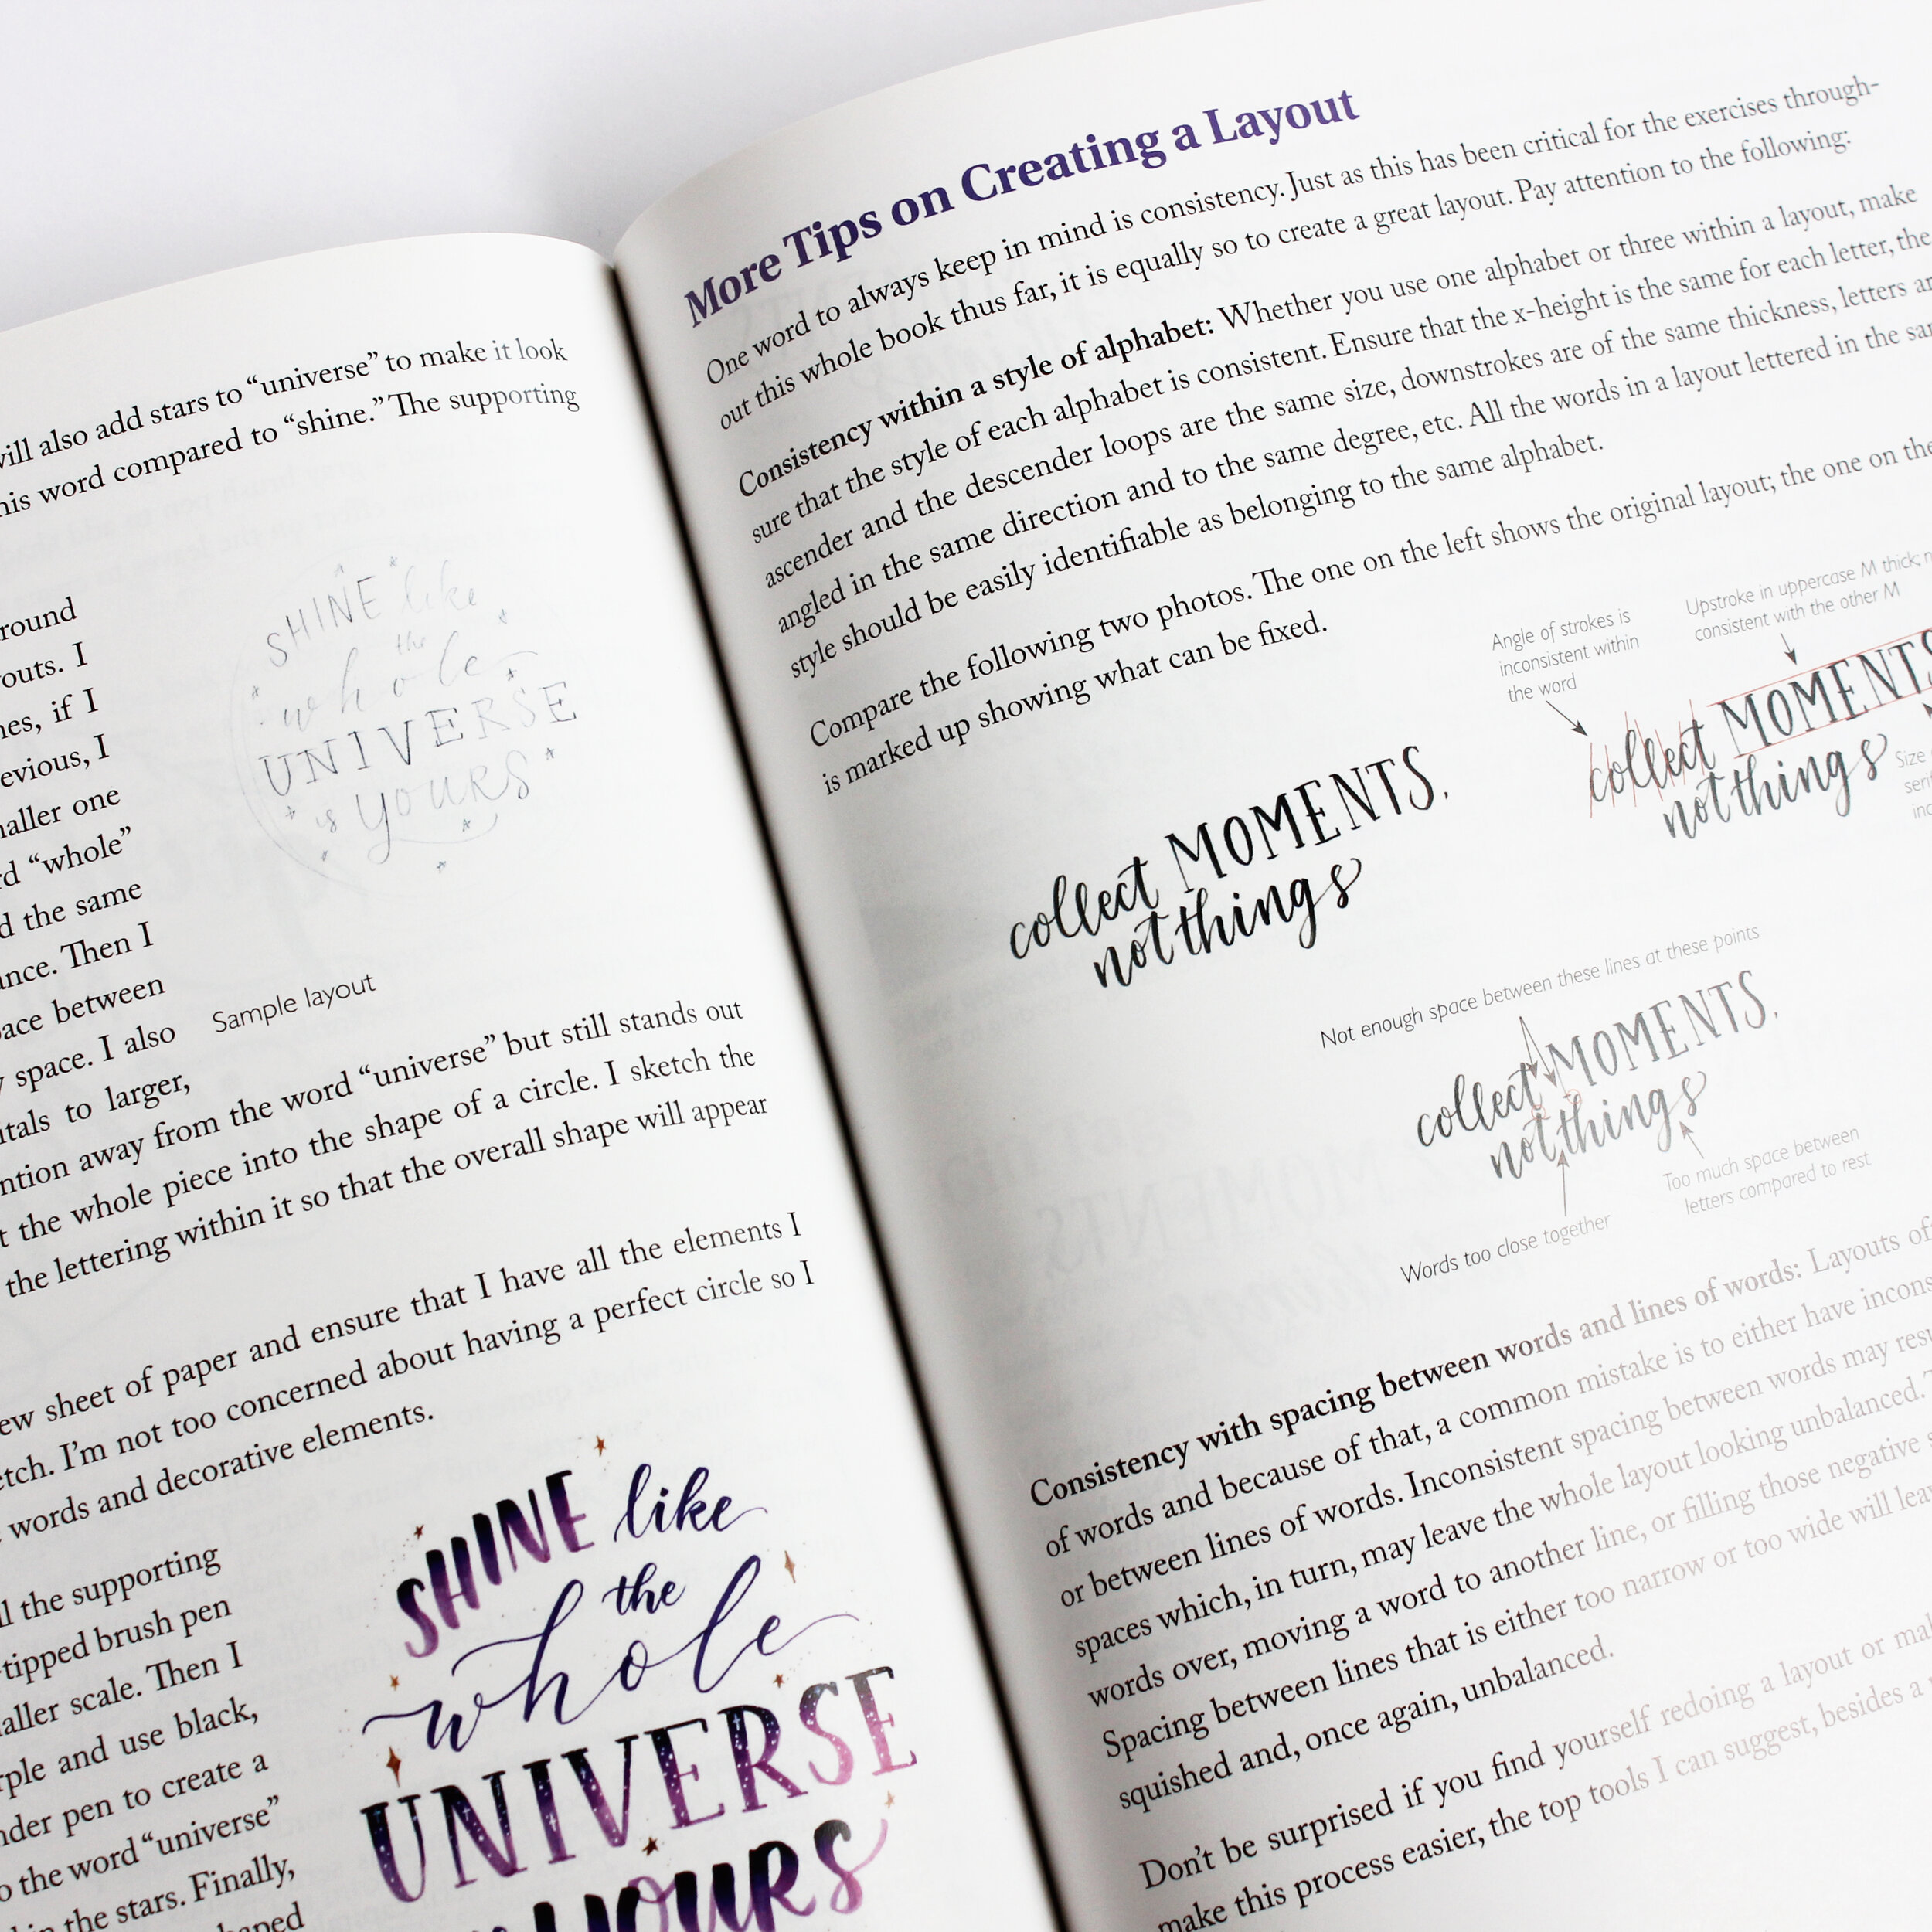 will also add stars to “universe” to make it look
his word compared to “shine.” The supporting
round
outs. I
nes, if I
evious, I
naller one
rd “whole”
d the same
ance. Then I
pace between
y space. I also
itals to larger,
SHINE like
the
whole
UNIVERSE
is YOURS
Sample layout
ntion away from the word “universe” but still stands out
t the whole piece into the shape of a circle. I sketch the
the lettering within it so that the overall shape will appear
ew sheet of paper and ensure that I have all the elements I
etch. I’m not too concerned about having a perfect circle so I
words and decorative elements.
ll the supporting
-tipped brush pen
aller scale. Then I
rple and use black,
nder pen to create a
o the word “universe”
in the stars. Finally,
haped
SHINE like
the
whole
UNIVERSE
YOURS
More Tips on Creating a Layout
One word to always keep in mind is consistency. Just as this has been critical for the exercises through-
out this whole book thus far, it is equally so to create a great layout. Pay attention to the following:
Consistency within a style of alphabet: Whether you use one alphabet or three within a layout, make
sure that the style of each alphabet is consistent. Ensure that the x-height is the same for each letter, the
ascender and the descender loops are the same size, downstrokes are of the same thickness, letters ar
angled in the same direction and to the same degree, etc. All the words in a layout lettered in the sam
style should be easily identifiable as belonging to the same alphabet.
Compare the following two photos. The one on the left shows the original layout; the one on the
is marked up showing what can be fixed.
collect MOMENTS,
not things
Angle of strokes is
inconsistent within
the word
Upstroke in uppercase M thick; n
consistent with the other M
collect MOMENTS
not things
Size
seri
inc
Not enough space between these lines at these points
collect MOMENTS,
not things
Too much space between
letters compared to rest
Words too close together
Consistency with spacing between words and lines of words: Layouts of
of words and because of that, a common mistake is to either have incons
or between lines of words. Inconsistent spacing between words may resu
spaces which, in turn, may leave the whole layout looking unbalanced. T
words over, moving a word to another line, or filling those negative s
Spacing between lines that is either too narrow or too wide will leav
squished and, once again, unbalanced.
Don’t be surprised if you find yourself redoing a layout or mak
make this process easier, the top tools I can suggest, besides a